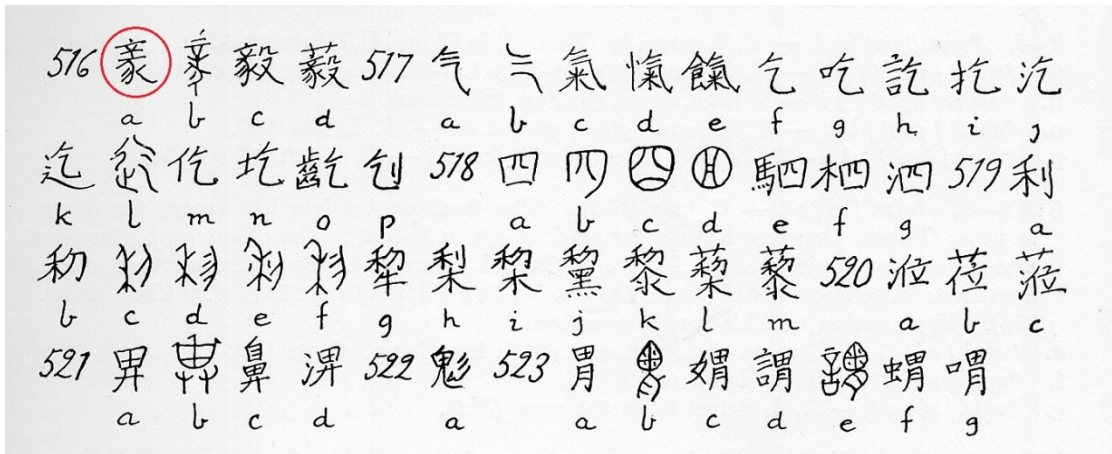 516 豙 毅 藙 517 气 氣 愾 餼 乞 吃 訖 扢 汔
a b c d a b c d e f g h i j
迄 仡 圪 齕 刏 518 四 駟 柶 泗 519 利
k l m n o p a b c d e f g a
犂 梨 棃 黎 蔾 藜 520 涖 莅 蒞
b c d e f g h i j k l m a b c
521 畀 鼻 淠 522 鬽 523 胃 媦 謂 蝟 喟
a b c d a a b c d e f g